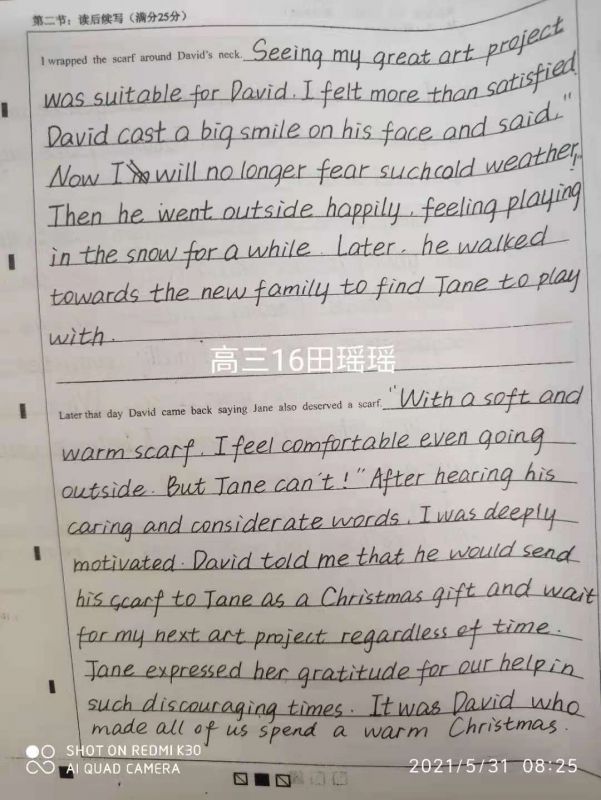 第二节：读后续写（满分25分）
I wrapped the scarf around David's neck. Seeing my great art project
was suitable for David. I felt more than satisfied.
David cast a big smile on his face and said, "
Now I will no longer fear suchcold weather!"
Then he went outside happily, feeling playing
in the snow for a while. Later, he walked
towards the new family to find Jane to play
with.
高三16田瑶瑶
Later that day David came back saying Jane also deserved a scarf. "With a soft and
warm scarf, I feel comfortable even going
outside. But Jane can't!" After hearing his
caring and considerate words, I was deeply
motivated. David told me that he would send
his scarf to Jane as a Christmas gift and wait
for my next art project regardless of time.
Jane expressed her gratitude for our help in
such discouraging times. It was David who
made all of us spend a warm Christmas.
SHOT ON REDMI K30
AI QUAD CAMERA
2021/5/31 08:25